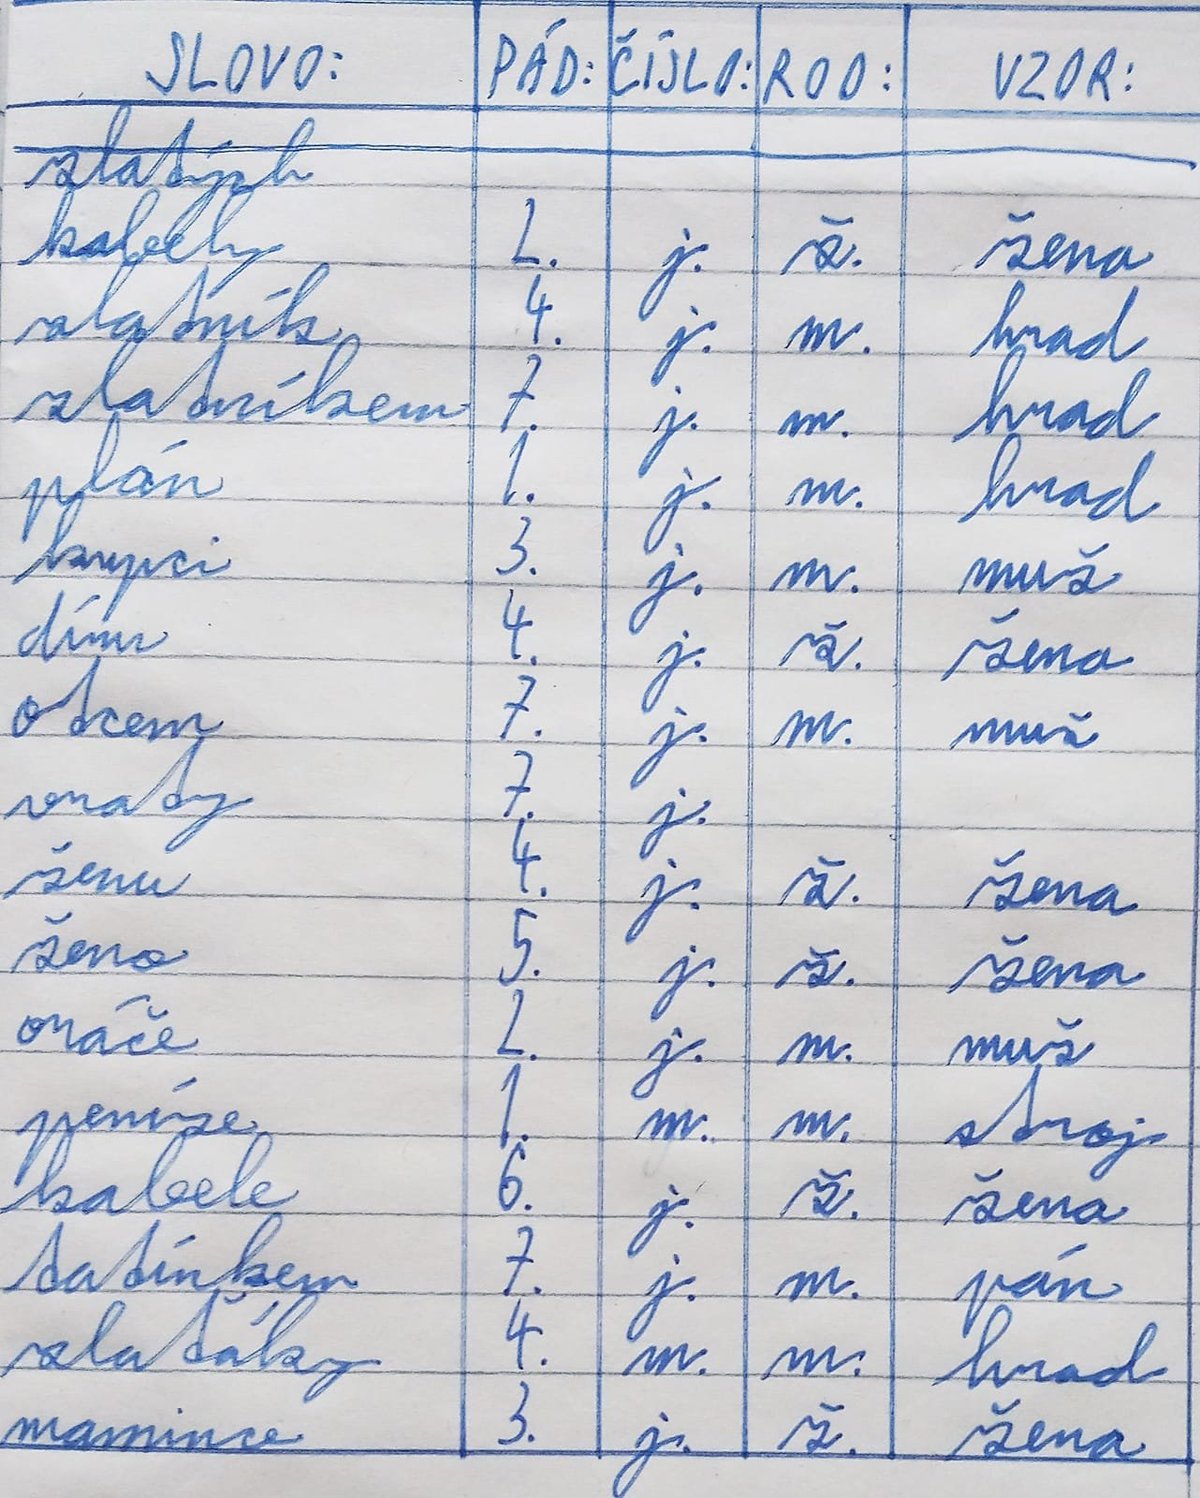 SLOVO: PÁD: ČÍSLO: ROD: VZOR:
zlatých
kabely 2. j. ž. žena
zlatník 4. j. m. hrad
zlatníkem 7. j. m. hrad
plán 1. j. m. hrad
kupci 3. j. m. muž
dínu 4. j. ž. žena
otcem 7. j. m. muž
vraty 7. j.
ženu 4. j. ž. žena
ženo 5. j. ž. žena
oráče 2. j. m. muž
peníze 1. m. m. stroj
kabele 6. j. ž. žena
tatínkem 7. j. m. pán
zlaťáky 4. m. m. hrad
mamince 3. j. ž. žena